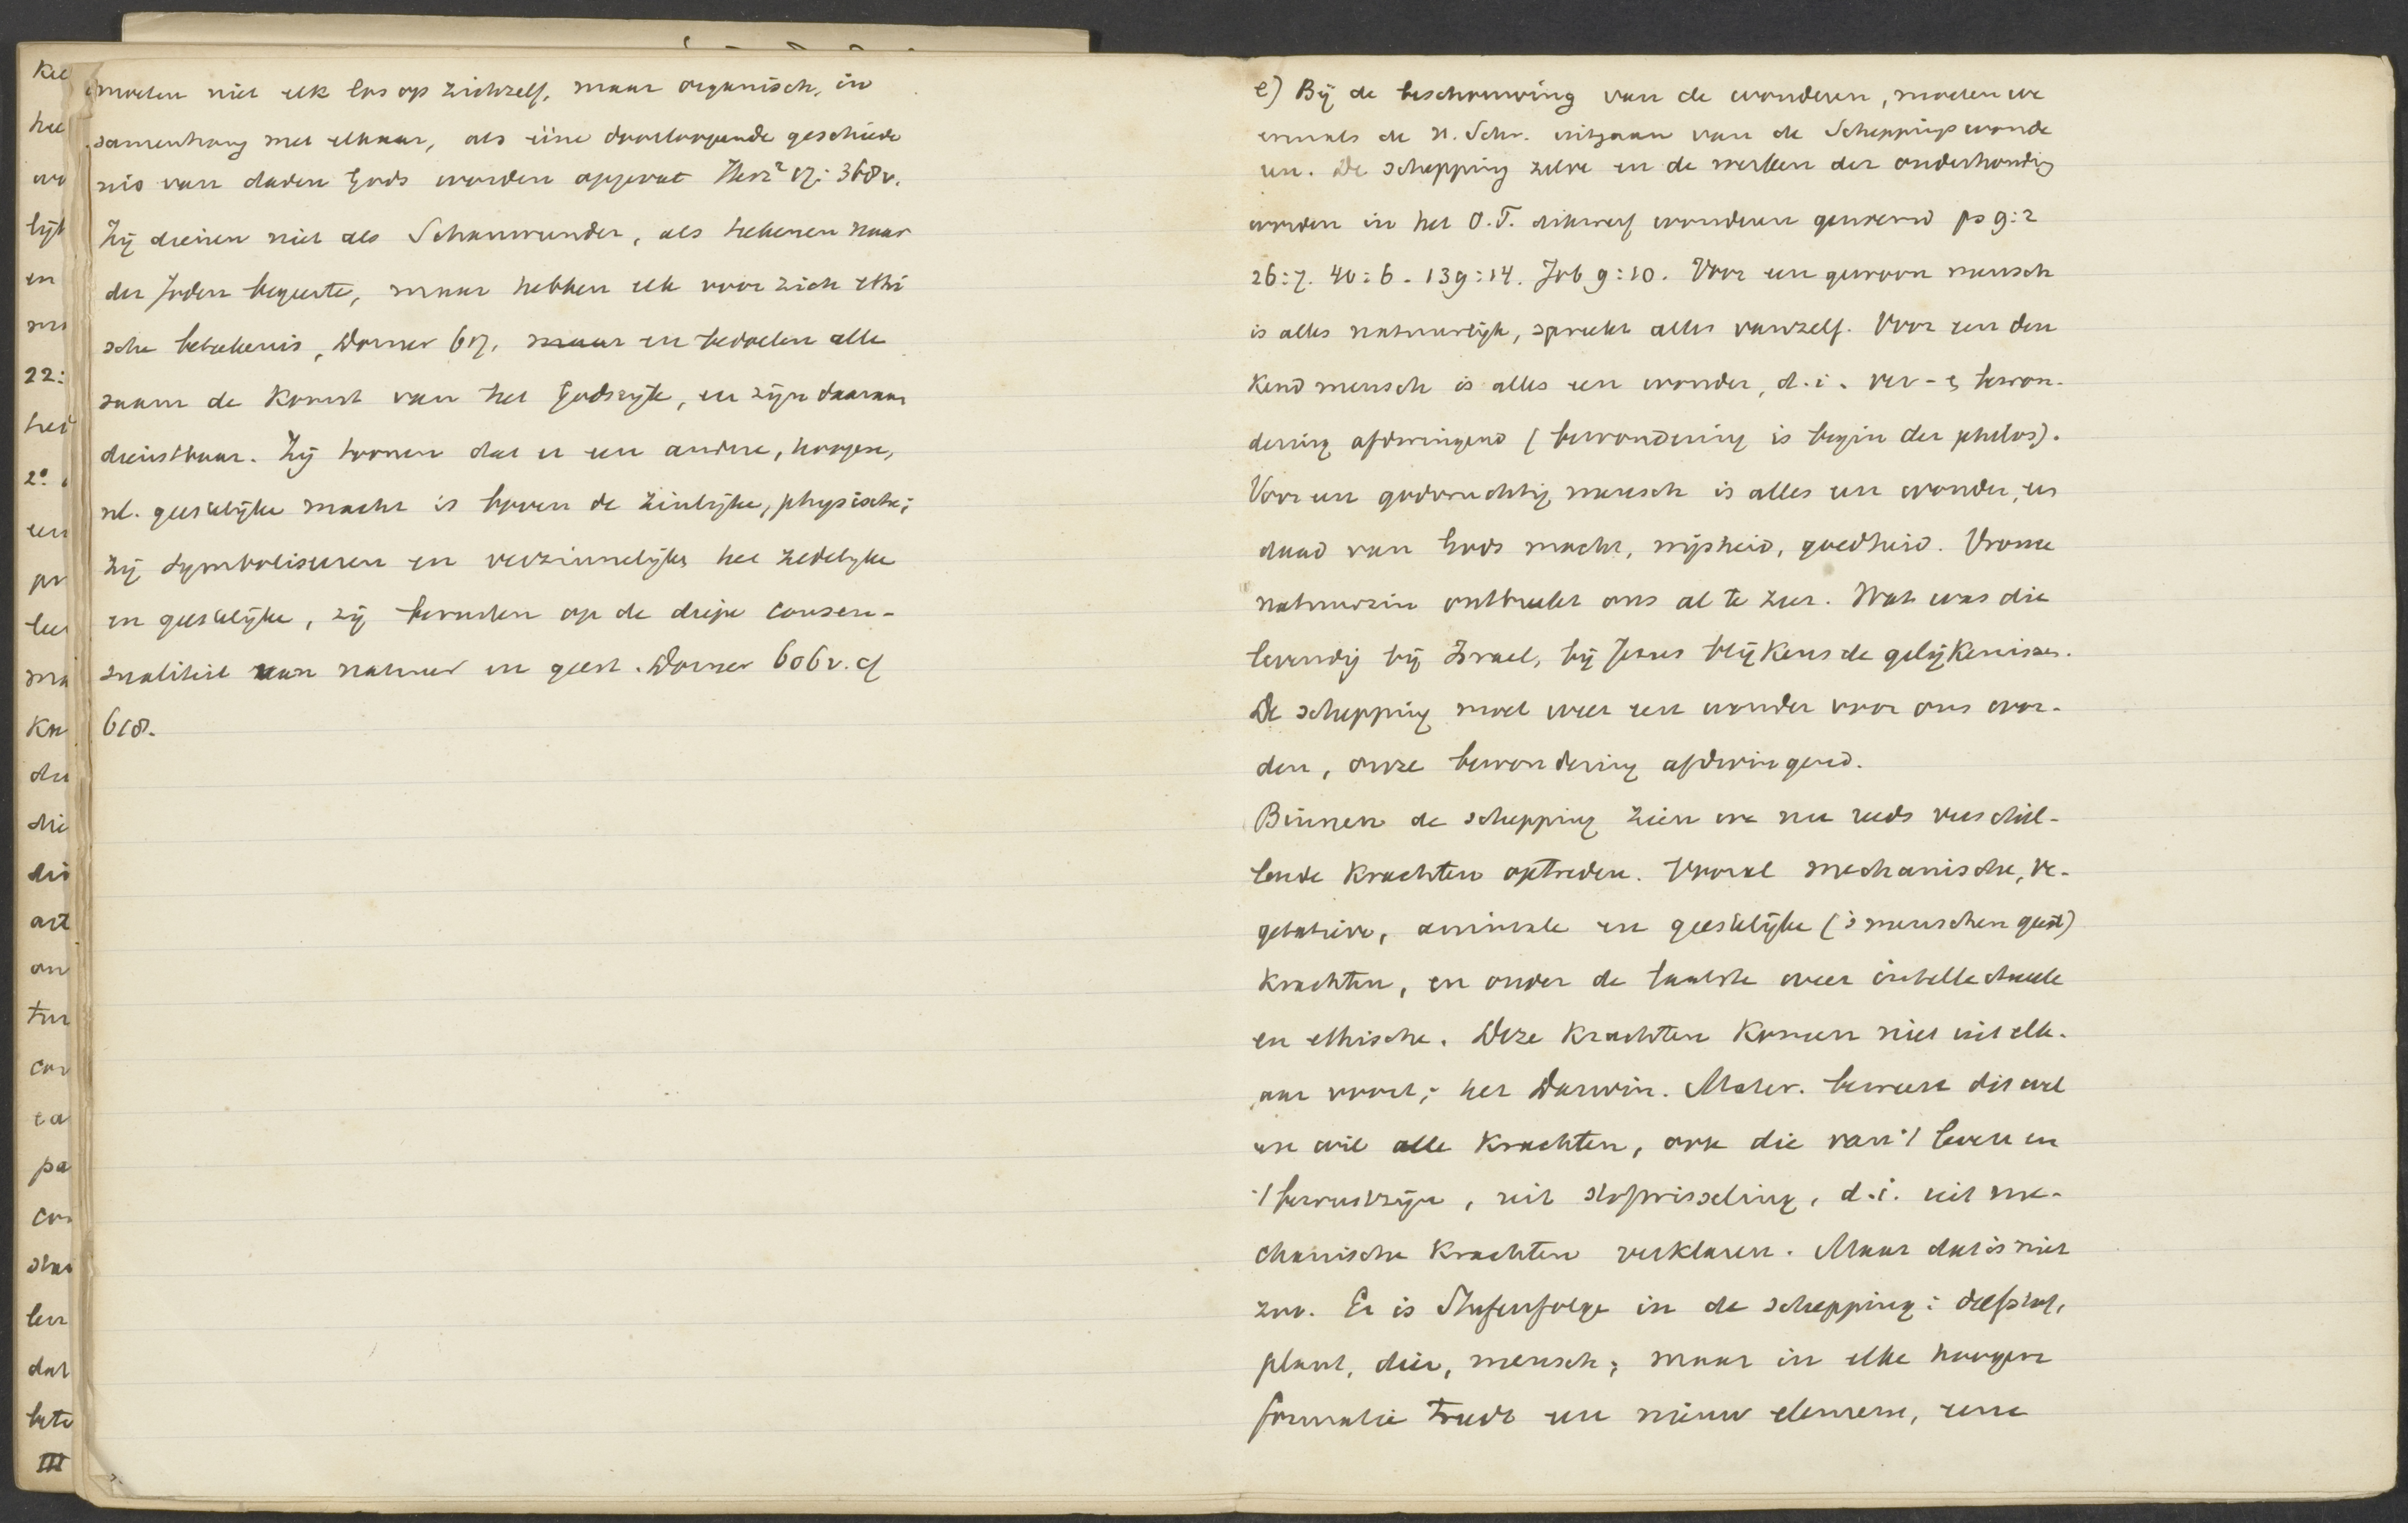 moeten niet elk los op zichzelf, maar organisch, in
samenhang met elkaar, als ééne doorloopende geschiede
nis van daden Gods worden opgevat Herz² 17: 368v.
Zij dienen niet als Schauwunder, als teekenen naar
der Joden begeerte, maar hebben elk voor zich ethi
sche beteekenis, Dorner 617, maar en bedoelen alle
saam de komst van het Godsrijk, en zijn daaraan
dienstbaar. Zij toonen dat er een andere, hoogere,
nl. geestelijke macht is boven de zinlijke, physische;
Zij symboliseeren en verzinnelijken het zedelijke
en geestelijke, zij berusten op de diepe consen-
sualiteit van natuur en geest. Dorner 606v. cf
618.
e) Bij de beschouwing van de wonderen, moeten we
evenals de H. Schr. uitgaan van de Scheppingswonde
ren. De schepping zelve en de werken der onderhouding
worden in het O.T. dikwerf wonderen genoemd ps 9:2
26:7. 40:6. 139:14. Job 9:10. Voor een gewoon mensch
is alles natuurlijk, spreekt alles vanzelf. Voor een den
kend mensch is alles een wonder, d.i. ver- & bewon-
dering afdwingend (bewondering is begin der philos).
Voor een godvruchtig mensch is alles een wonder, een
daad van Gods macht, wijsheid, goedheid. Vrome
natuurzin ontbreekt ons al te zeer. Wat was die
levendig bij Israel, bij Jezus blijkens de gelijkenissen.
De schepping moet weer een wonder voor ons wor-
den, onze bewondering afdwingend.
Binnen de schepping zien we nu reeds verschil-
lende krachten optreden. Vooral mechanische, ve-
getatieve, animale en geestelijke ('s menschen geest)
krachten, en onder de laatste weer intellectueele
en ethische. Deze krachten komen niet uit elk-
aar voort; het Darwin. Mater. beweert dit wel
en wil alle krachten, ook die van 't leven en
't bewustzijn, uit stofwisseling, d.i. uit me-
chanische krachten verklaren. Maar dat is niet
zoo. Er is Stufenfolge in de schepping: delfstof,
plant, dier, mensch; maar in elke hoogere
formatie treedt een nieuw element, eene